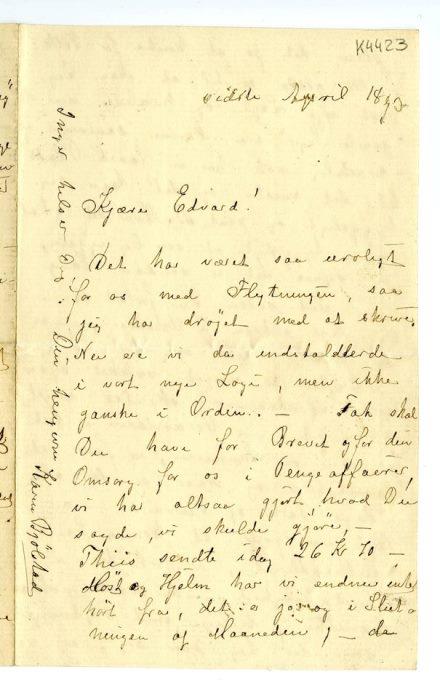 K4423
sidste April 1890
Kjære Edvard!
Det har været saa uroligt
for os med Flytningen, saa
jeg har drøjet med at skrive.
Nu ere vi da indstalderede
i vort nye Logi, men ikke
ganske i Orden. — Tak skal
Du have for Brevet og for din
Omsorg for os i Pengeaffærer,
vi har altsaa gjort, hvad Du
sagde, vi skulde gjöre, —
Thiis sendte idag 26 Kr 70 —
Höst og Hjelm har vi endnu intet
hört fra, det er jo og i Slut
ningen af Maaneden, — da
Inger hilser Dig!
Din hengivne Karen Bjølstad